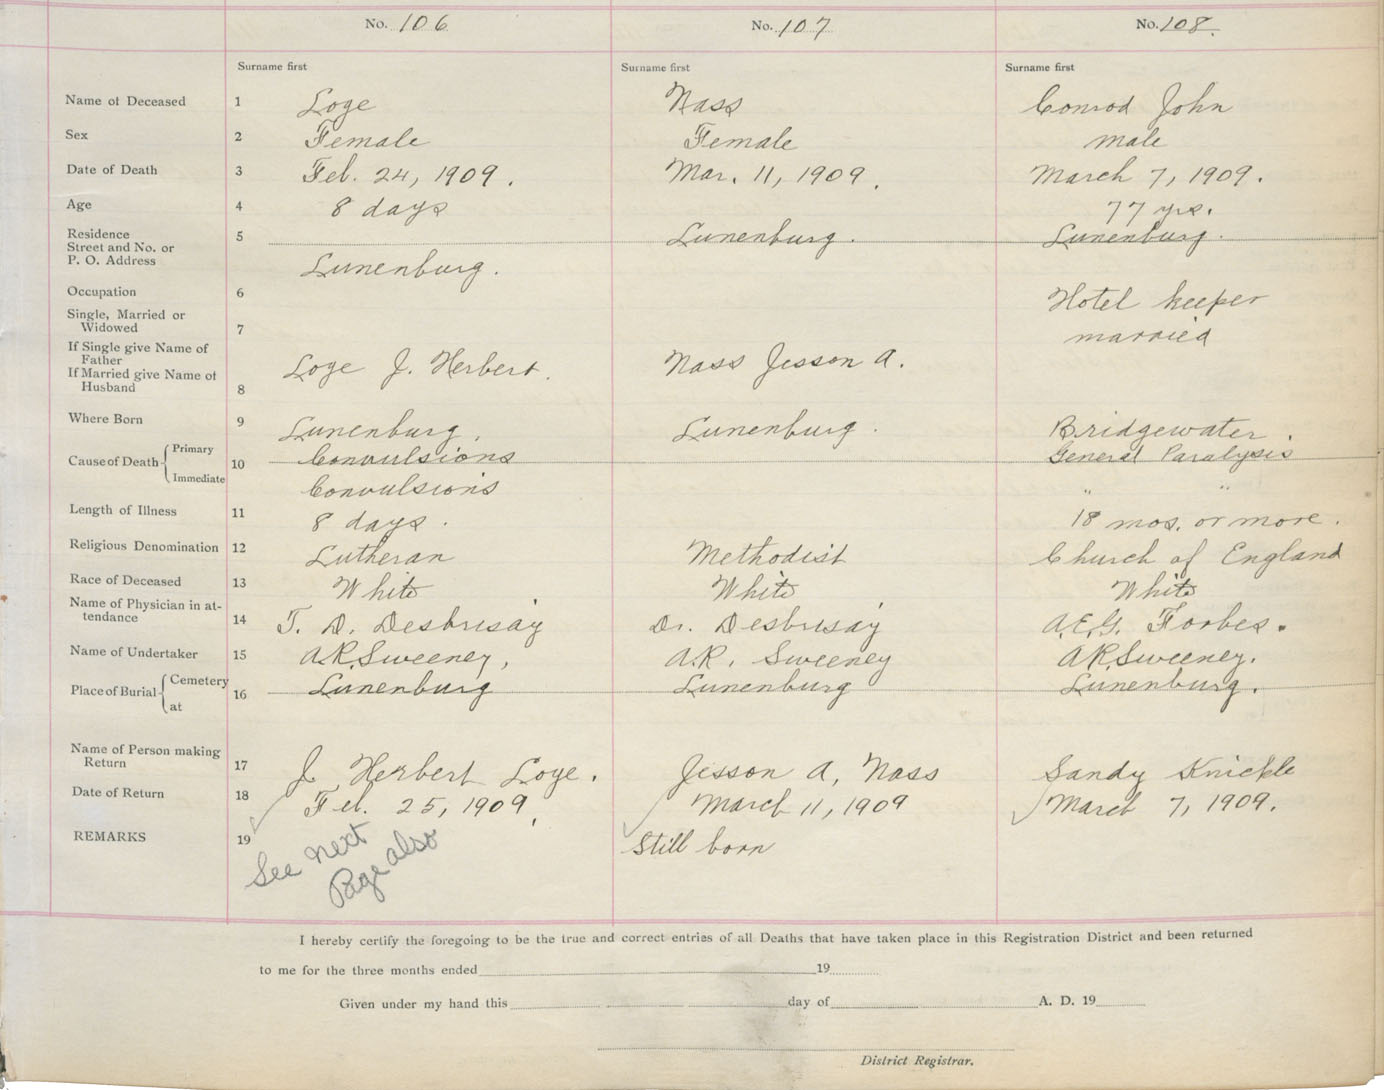 No. 106 No. 107 No. 108.
Surname first Surname first Surname first
Name of Deceased 1 Loge Nass Conrod John
Sex 2 Female Female male
Date of Death 3 Feb. 24, 1909. Mar. 11, 1909. March 7, 1909.
Age 4 8 days 77 yrs.
Residence
Street and No. or 5 Lunenburg. Lunenburg.
P. O. Address Lunenburg.
Occupation 6 Hotel keeper
Single, Married or
Widowed 7 married
If Single give Name of
Father
If Married give Name of Loge J. Herbert. Nass Jesson A.
Husband 8
Where Born 9 Lunenburg. Lunenburg. Bridgewater.
Cause of Death Primary 10 Convulsions General Paralysis
Immediate Convulsions " "
Length of Illness 11 8 days. 18 mos. or more.
Religious Denomination 12 Lutheran Methodist Church of England
Race of Deceased 13 White White White
Name of Physician in at-
tendance 14 T. D. Desbrisay Dr. Desbrisay A.E.G. Forbes.
Name of Undertaker 15 A.R. Sweeney, A.R. Sweeney A R Sweeney.
Place of Burial Cemetery 16 Lunenburg Lunenburg Lunenburg.
at
Name of Person making
Return 17 J. Herbert Loye. Jesson A. Nass Sandy Knickle
Date of Return 18 Feb. 25, 1909. March 11, 1909 March 7, 1909.
REMARKS 19 See next Still born
Page also
I hereby certify the foregoing to be the true and correct entries of all Deaths that have taken place in this Registration District and been returned
to me for the three months ended 19
Given under my hand this day of A. D. 19
District Registrar.